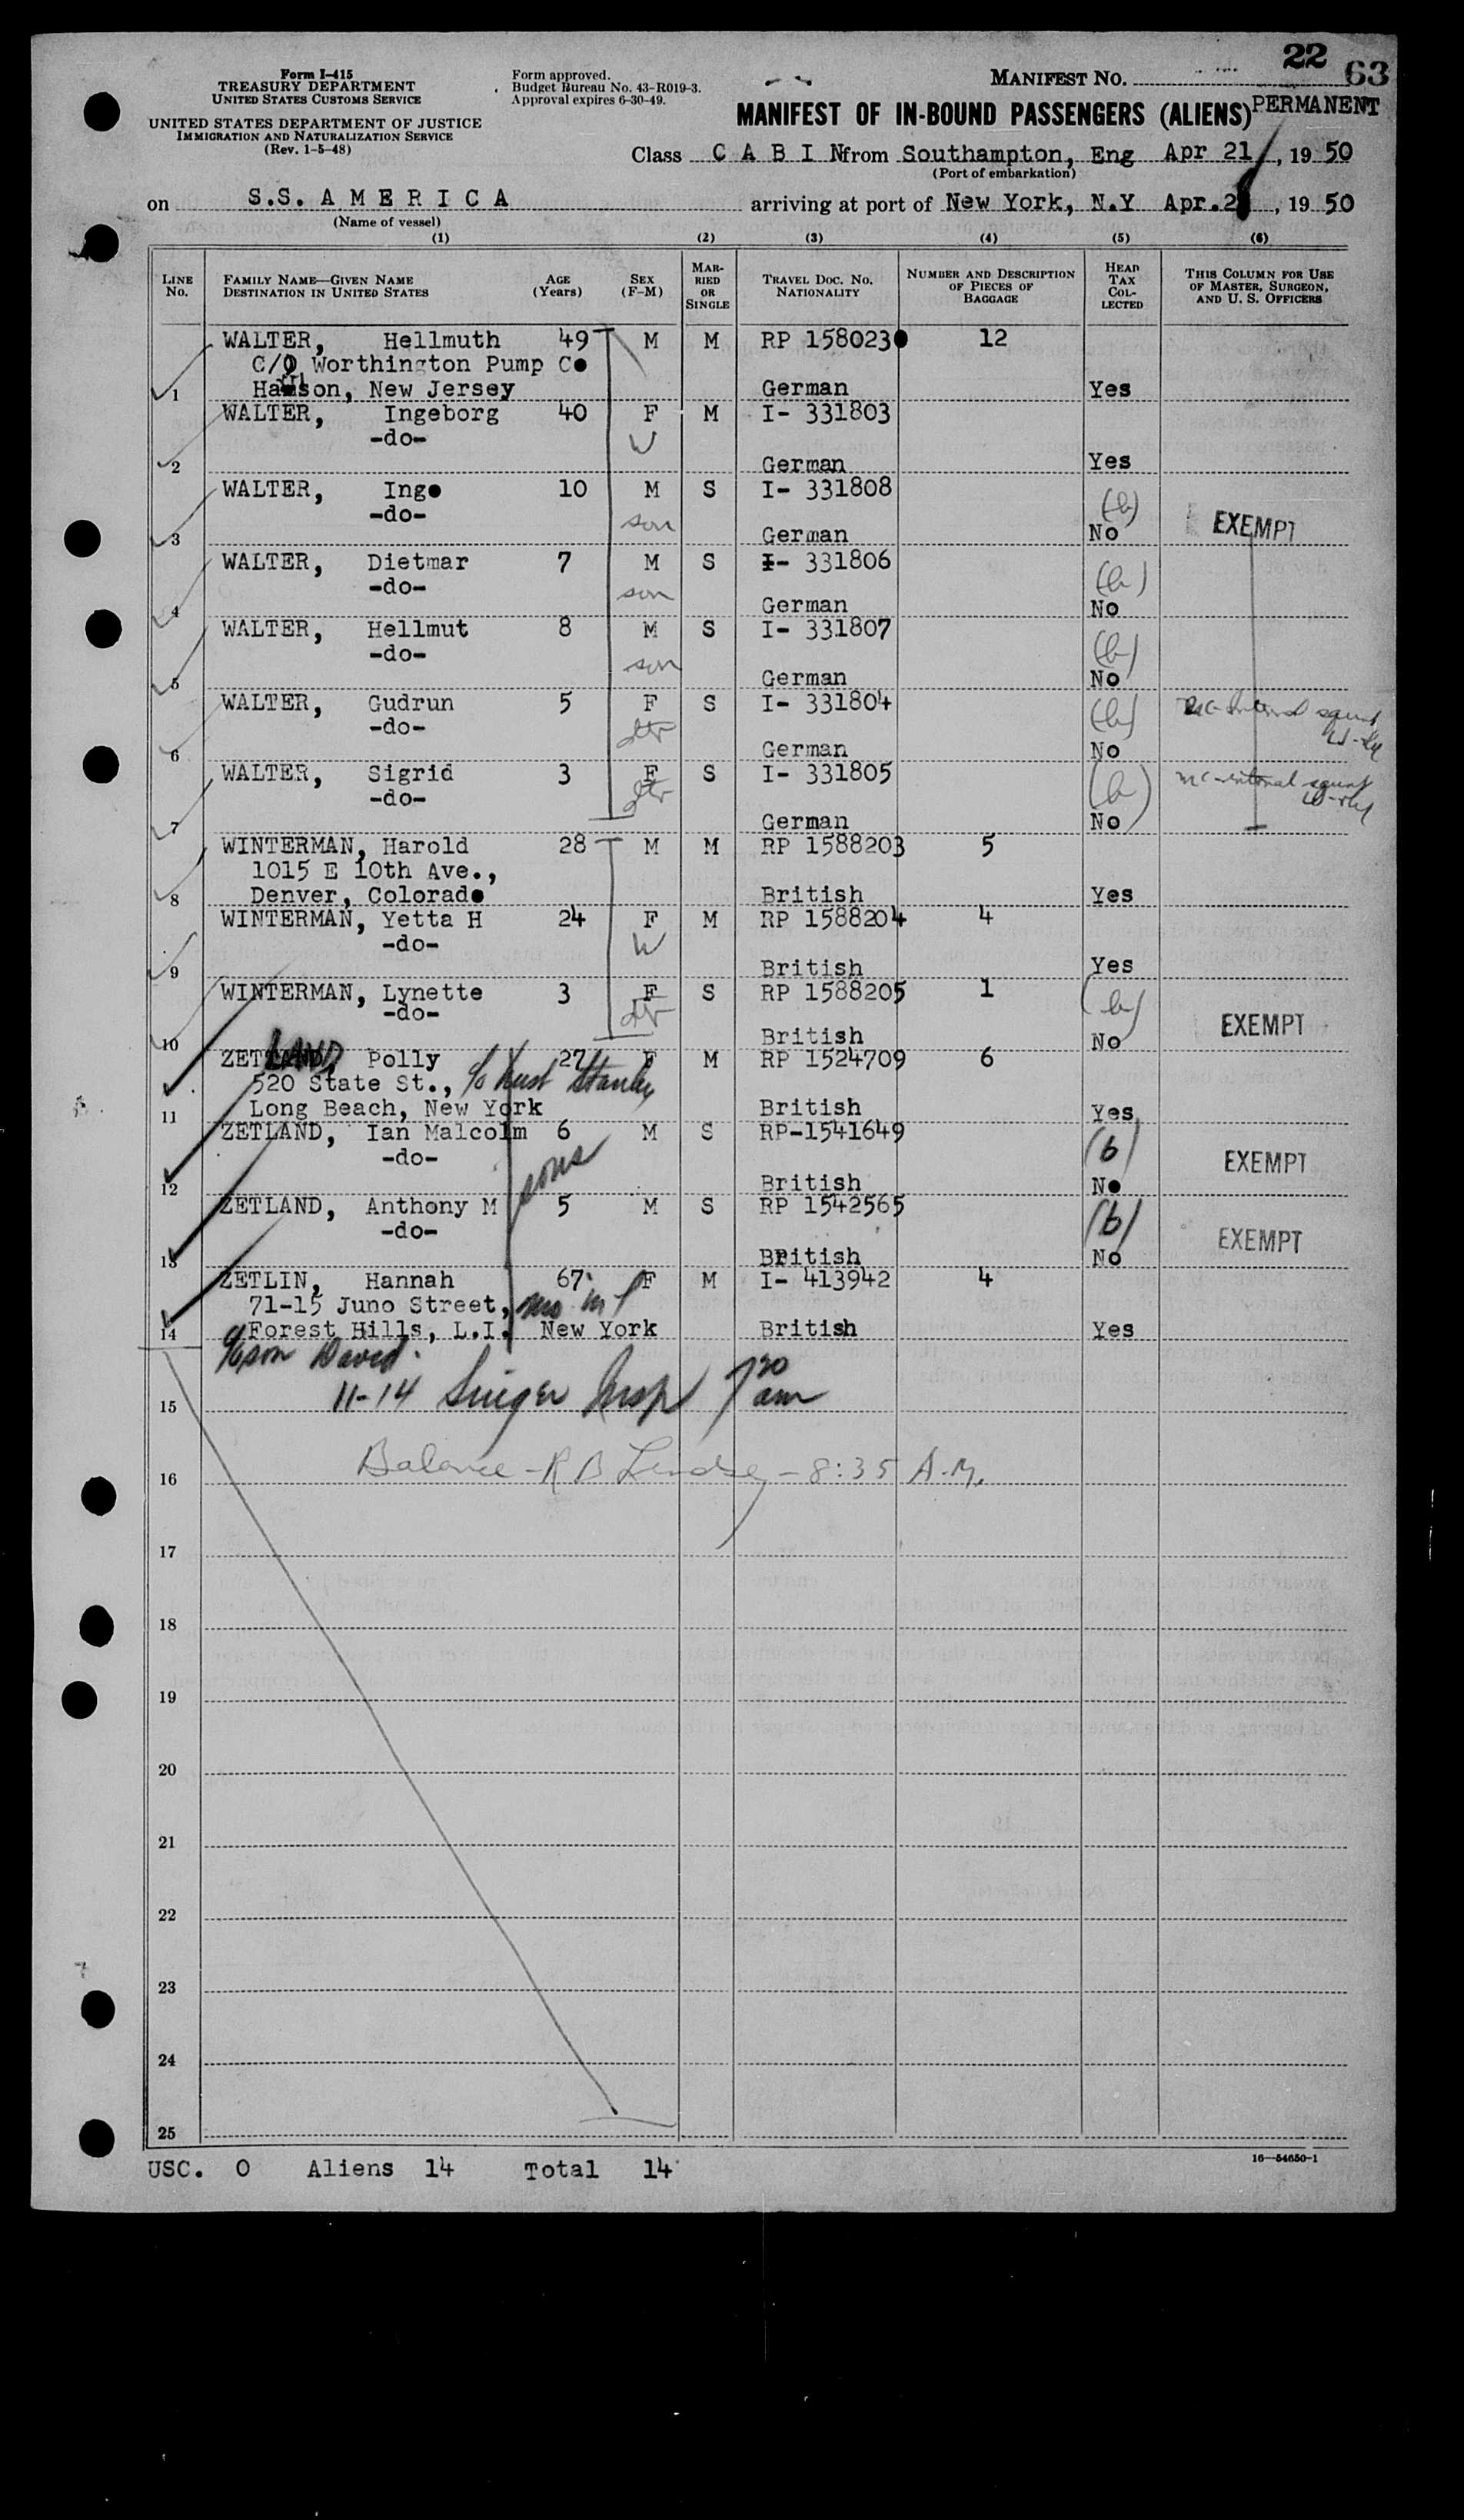 22
63
Form I-415
TREASURY DEPARTMENT
UNITED STATES CUSTOMS SERVICE
UNITED STATES DEPARTMENT OF JUSTICE
IMMIGRATION AND NATURALIZATION SERVICE
(Rev. 1-5-48)
Form approved.
Budget Bureau No. 43-R019-3.
Approval expires 6-30-49.
MANIFEST NO.
MANIFEST OF IN-BOUND PASSENGERS (ALIENS) PERMANENT
Class C A B I N from Southampton, Eng Apr 21, 19 50
(Port of embarkation)
on S.S. A M E R I C A arriving at port of New York, N.Y Apr. 2 , 19 50
(Name of vessel)
(1) (2) (3) (4) (5) (6)
LINE No. FAMILY NAME—GIVEN NAME DESTINATION IN UNITED STATES AGE (Years) SEX (F-M) MARRIED OR SINGLE TRAVEL DOC. NO. NATIONALITY NUMBER AND DESCRIPTION OF PIECES OF BAGGAGE HEAD TAX COLLECTED THIS COLUMN FOR USE OF MASTER, SURGEON, AND U. S. OFFICERS
WALTER, Hellmuth 49 M M RP 1580230 12
C/O Worthington Pump Co
1 New Jersey German Yes
WALTER, Ingeborg 40 F M I- 331803
-do- W
2 German Yes
WALTER, Ingo 10 M S I- 331808
-do- son (b) EXEMPT
3 German No
WALTER, Dietmar 7 M S I- 331806
-do- son (b)
4 German No
WALTER, Hellmut 8 M S I- 331807
-do- son (b)
5 German No
WALTER, Gudrun 5 F S I- 331804
-do- dtr (b)
6 German No
WALTER, Sigrid 3 F S I- 331805
-do- dtr (b)
7 German No
WINTERMAN, Harold 28 M M RP 1588203 5
1015 E 10th Ave.,
8 Denver, Colorado British Yes
WINTERMAN, Yetta H 24 F M RP 1588204 4
-do- W
9 British Yes
WINTERMAN, Lynette 3 F S RP 1588205 1
-do- dtr (b) EXEMPT
10 British No
ZETLAND, Polly 27 F M RP 1524709 6
520 State St., c/o Stanley
11 Long Beach, New York British Yes
ZETLAND, Ian Malcolm 6 M S RP-1541649
-do- sons (b) EXEMPT
12 British No
ZETLAND, Anthony M 5 M S RP 1542565
-do- (b) EXEMPT
13 British No
ZETLIN, Hannah 67 F M I- 413942 4
71-15 Juno Street,
14 Forest Hills, L.I. New York British Yes
c/o son David
15 11-14 Singer Insp 7 20 am
16 Balance - R B Lindsey - 8:35 A.M.
17
18
19
20
21
22
23
24
25
USC. 0 Aliens 14 Total 14
16—54650-1